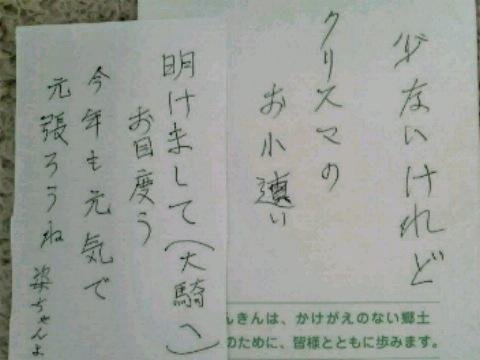 少ないけれど
クリスマの
お小遣い
んきんは、かけがえのない郷土
のために、皆様とともに歩みます。
明けまして(大騎へ)
お目度う
今年も元気で
元張ろうね